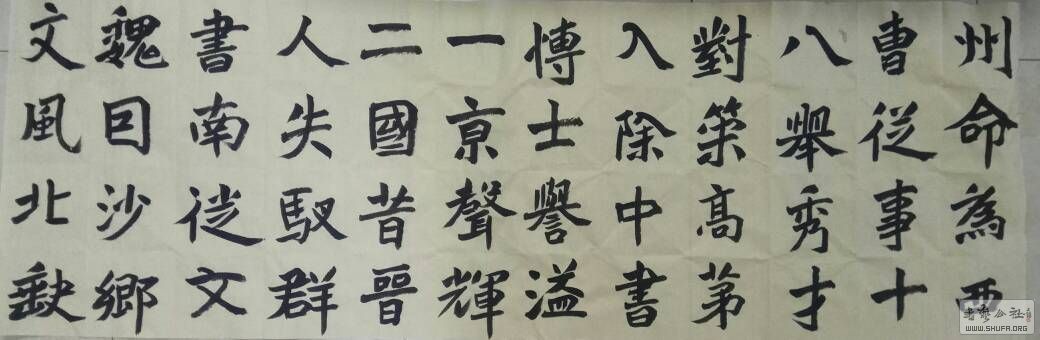 州命為西
曹從事十
八舉秀才
對策高第
入除中書
博士譽溢
一京聲輝
二國昔晉
人失馭群
書南徙文
魏囙沙鄉
文風北缺
書藝公社
WWW.SHUFA.ORG